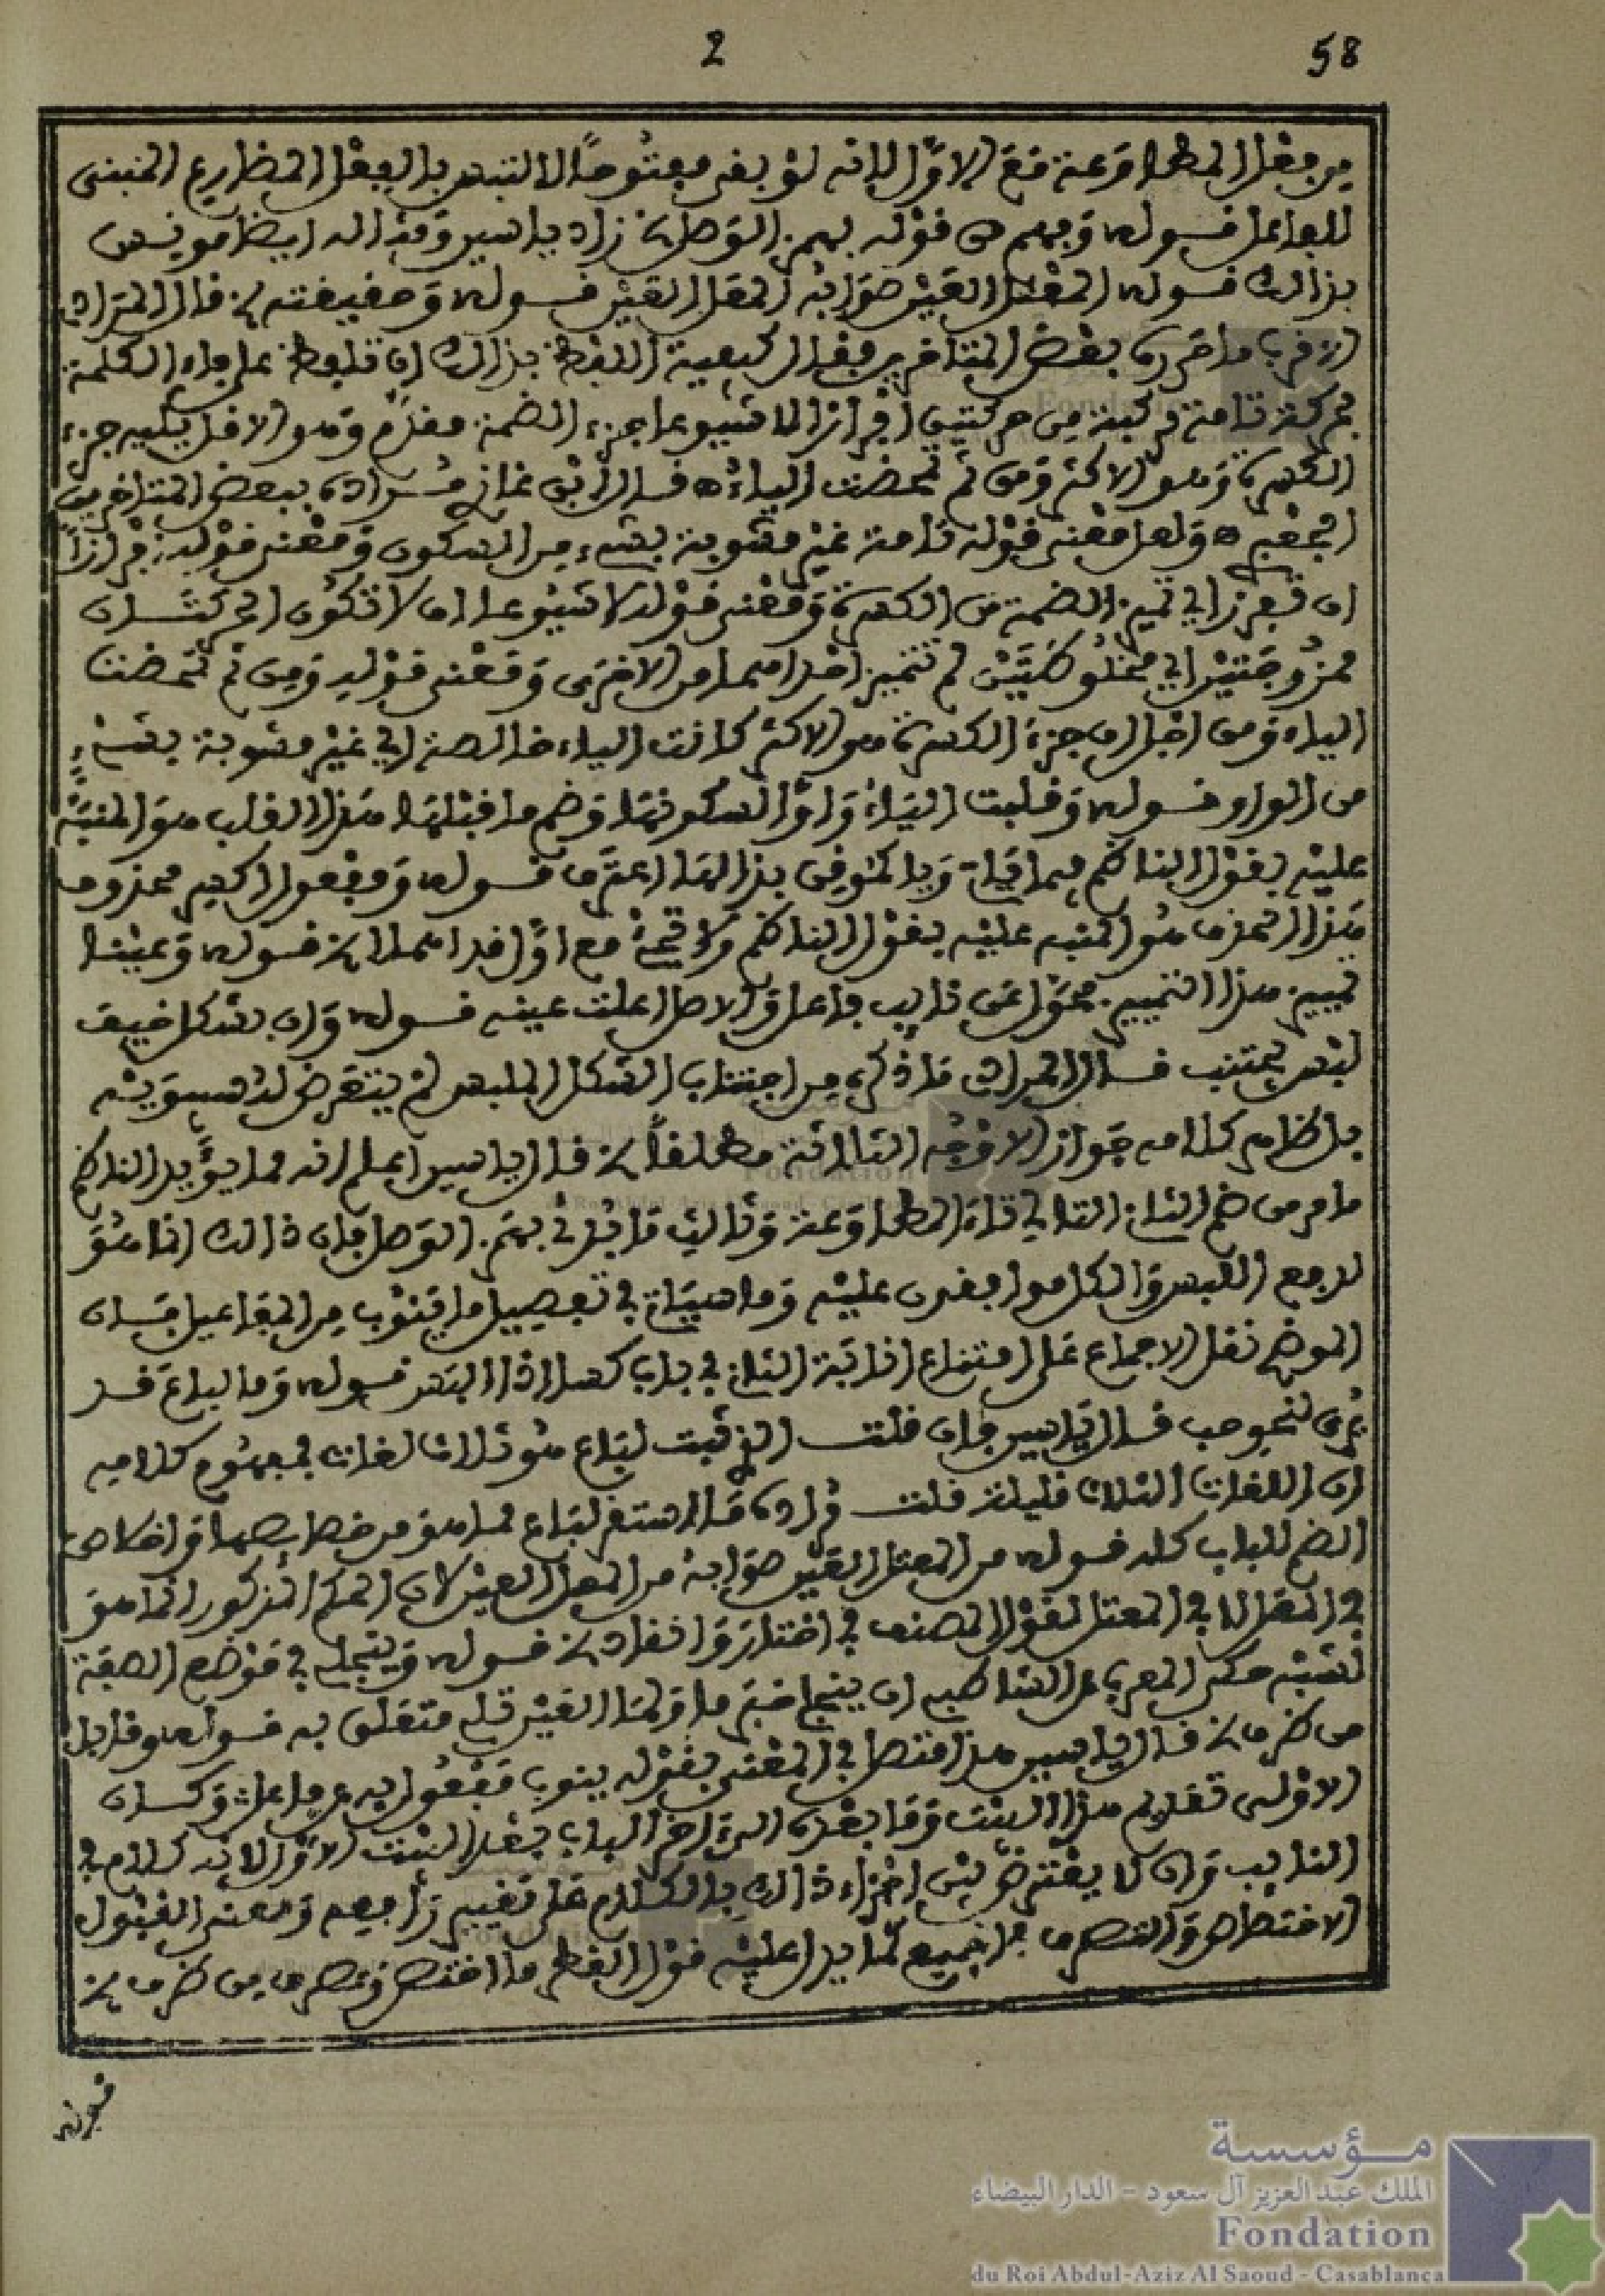 58
2
من فعل المطاوعة مع الاول لانه لو بقي مفتوحا لالتبس بالفعل المضارع المبني
للفاعل قوله وبهمز قوله بهمز الوصل زاد ياسين ومثاله ايضا مونس
بذالك قوله المعتل العين صوابه المعل العين قوله وحقيقته قال المرادي
الاقرب ما حرره بعض المتأخرين فقال كيفية اللفظ بذالك ان تلفظ على فاء الكلمة
بحركة تامة مركبة من حركتين افرازا لا شيوعا جزء الضمة مقدم وهو الاقل يليه جزء
الكسرة وهو الاكثر ومن ثم تمحضت الياء قال ابن غازي مراده ببعض المتأخرين
الجعبري ولعل معنى قوله تامة غير مشوبة بشيء من السكون ومعنى قوله افرازا
ان تفرز اي تميز الضمة من الكسرة ومعنى قوله لا شيوعا ان لا تكون الحركتان
ممزوجتين اي مخلوطتين لم تتميز احداهما من الاخرى ومعنى قوله ومن ثم تمحضت
الياء ومن اجل ان جزء الكسرة هو الاكثر كانت الياء خالصة اي غير مشوبة بشيء
من الواو قوله وقلبت الياء واوا لسكونها وضم ما قبلها هذا القلب هو المنبه
عليه بقول الناظم فيما ياتي ويا كموقن بذالها اعترف قوله ومفعول اكسير محذوف
هذا الحذف هو المنبه عليه بقول الناظم ولا تجئ مع اول قد اهملا قوله وعينا
تمييز هذا التمييز محول عن نايب فاعل والاصل اعلت عينه قوله وان بشكل خيف
لبس يجتنب قال المرادي ما ذكره من اجتناب الشكل الملبس لم يتعرض له سيبويه
بل ظاهر كلامه جواز الاوجه الثلاثة مطلقا قال ياسين اعلم انه مما يؤيد الناظم
ما مر من ضم الثاني التالي تاء المطاوعة وثالث ما بدئ بهمز الوصل فان ذالك انما هو
لدفع اللبس والكل موافقون عليه وما سياتي في تفصيل ما ينوب من المفاعيل فان
الموضح نقل الاجماع على امتناع انابة الثاني في باب كسا اذا البس قوله وما لباع قد
يرى لنحو حب قال ياسين فان قلت الذي ثبت لباع هو ثلاث لغات فمفهوم كلامه
ان اللغات الثلاث قليلة قلت مراده ما استقر لباع مما هو من خصايصها واخلاص
الضم للباب كله قوله من المعتل العين صوابه من المعل العين لان الحكم المذكور انما هو
في المعل لا في المعتل لقول المصنف في اختار وانقاد قوله وينجلي في موضع الصفة
لشبه حكى المعرب عن الشاطبي ان ينجلي خبر ما ولما العين تلي متعلق به قوله وقابل
من ظرف قال ياسين هذا متصل في المعنى بقوله ينوب مفعول به عن فاعل وكان
الاولى تقديم هذا البيت وما بعده الى اخر الباب بعد البيت الاول لانه كلام في
النايب وان لا يعترض بين اجزاء ذالك بالكلام على تغيير رافعه ومعنى القبول
الاختصاص والتصرف في الجميع كما يدل عليه قول الناظم ما اختص وتصرف من ظرف
قوله
مؤسسة
الملك عبد العزيز آل سعود - الدار البيضاء
Fondation
du Roi Abdul-Aziz Al Saoud - Casablanca